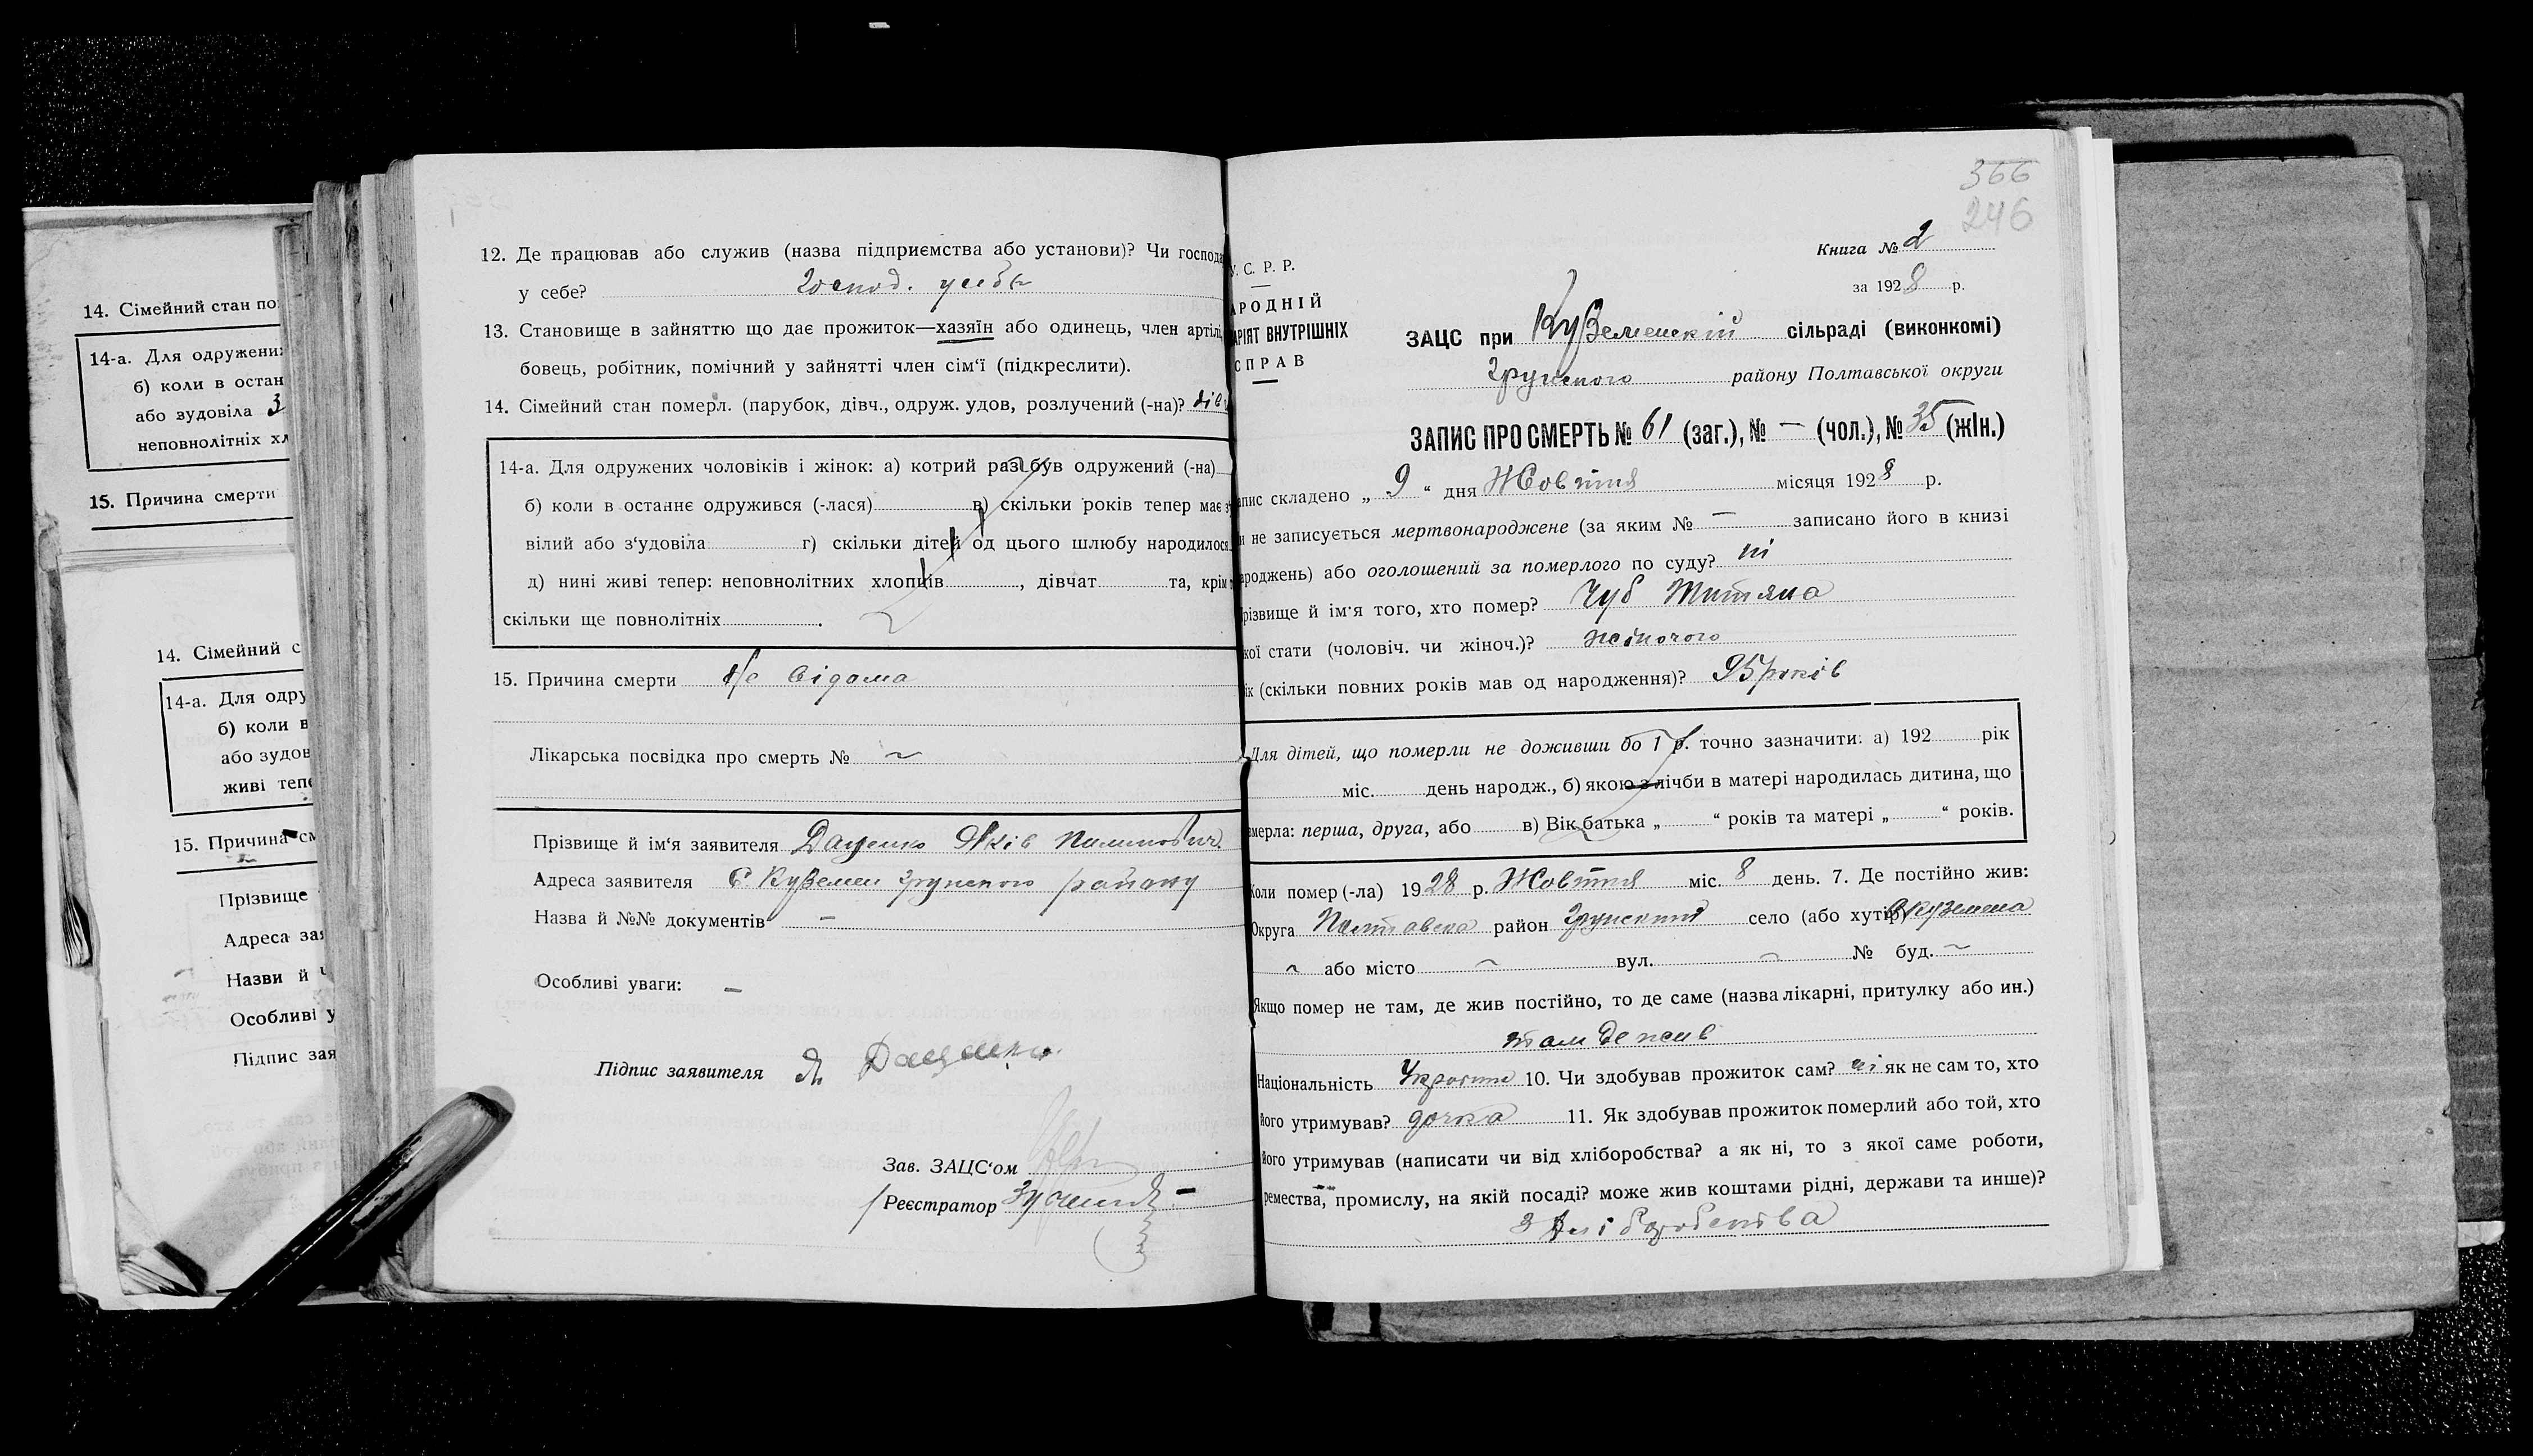 14. Сімейний стан по
14-а. Для одружени
б) коли в остан
або зудовіла 3
неповнолітніх хл
15. Причина смерти
14. Сімейний с
14-а. Для одру
б) коли в
або зудов
живі теп
15. Причина см
Прізвище
Адреса зая
Назви й
Особливі у
Підпис зая
12. Де працював або служив (назва підприємства або установи)? Чи господа
у себе? господ. у себе
13. Становище в зайняттю що дає прожиток—хазяїн або одинець, член артілі,
бовець, робітник, помічний у зайнятті член сім'ї (підкреслити).
14. Сімейний стан померл. (парубок, дівч., одруж. удов, розлучений (-на)? дів
14-а. Для одружених чоловіків і жінок: а) котрий раз був одружений (-на)
б) коли в останнє одружився (-лася) в) скільки років тепер має з
вілий або з'удовіла г) скільки дітей од цього шлюбу народилося
д) нині живі тепер: неповнолітних хлопців , дівчат та, крім
скільки ще повнолітніх .
15. Причина смерти Не відома
Лікарська посвідка про смерть № ~
Прізвище й ім'я заявителя Даценко Яків
Адреса заявителя С. Куземен Грунського району
Назва й №№ документів —
Особливі уваги: —
Підпис заявителя Я. Даценко
Зав. ЗАЦС'ом
Реєстратор
366
246
Книга № 2
за 1928 р.
У. С. Р. Р.
АРОДНІЙ
АРІЯТ ВНУТРІШНІХ
СПРАВ
ЗАЦС при Куземенскій сільраді (виконкомі)
Грунского району Полтавської округи
ЗАПИС ПРО СМЕРТЬ № 61 (заг.), № — (чол.), № 35 (жін.)
апис складено „ 9 “ дня Жовтня місяця 1928 р.
и не записується мертвонароджене (за яким № — записано його в книзі
ароджень) або оголошений за померлого по суду? ні
різвище й ім'я того, хто помер? Чуб Титяна
кої статі (чоловіч. чи жіноч.)? жіночого
ік (скільки повних років мав од народження)? 95 років
Для дітей, що померли не доживши до 1 р. точно зазначити: а) 192 рік
міс. день народж., б) якою з лічби в матері народилась дитина, що
мерла: перша, друга, або в) Вік батька „ “ років та матері „ “ років.
Коли помер (-ла) 1928 р. Жовтня міс. 8 день. 7. Де постійно жив:
Округа Полтавска район Грунский село (або хутір) Куземена
~ або місто ~ вул. ~ № буд. ~
Якщо помер не там, де жив постійно, то де саме (назва лікарні, притулку або ин.)
там де жив
Національність 10. Чи здобував прожиток сам? ні як не сам то, хто
його утримував? дочка 11. Як здобував прожиток померлий або той, хто
його утримував (написати чи від хліборобства? а як ні, то з якої саме роботи,
ремества, промислу, на якій посаді? може жив коштами рідні, держави та инше)?
З хліборобства